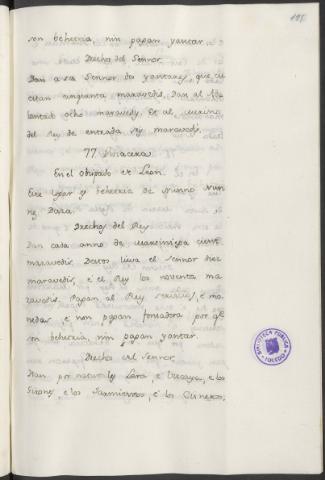 197.
son behetria, nin pagan yantar.
Drechos del Señor.
Dan a su Sennor dos yantares, que cu
estan cinquenta maravedis. Dan al Ade
lantado ocho maravedis, et al merino
del Rey de entrada sey maravedis.
77
En el obispado de Leon.
Este logar es behetria de Nunno Nun
nez Daza.
Drechos del Rey
Dan cada anno de martiniega cient
maravedis. Destos lieva el sennor diez
maravedis, e el Rey los noventa ma
ravedis. Pagan al Rey servicios, e mo
nedas, e non pagan fonsadera por q̃
son behetria, nin pagan yantar.
Drechos del Sennor
Han por naturales Lara, e Vizcaya, e los
Girones, e los Sarmientos, e los Cisneros,
BIBLIOTECA PUBLICA
TOLEDO